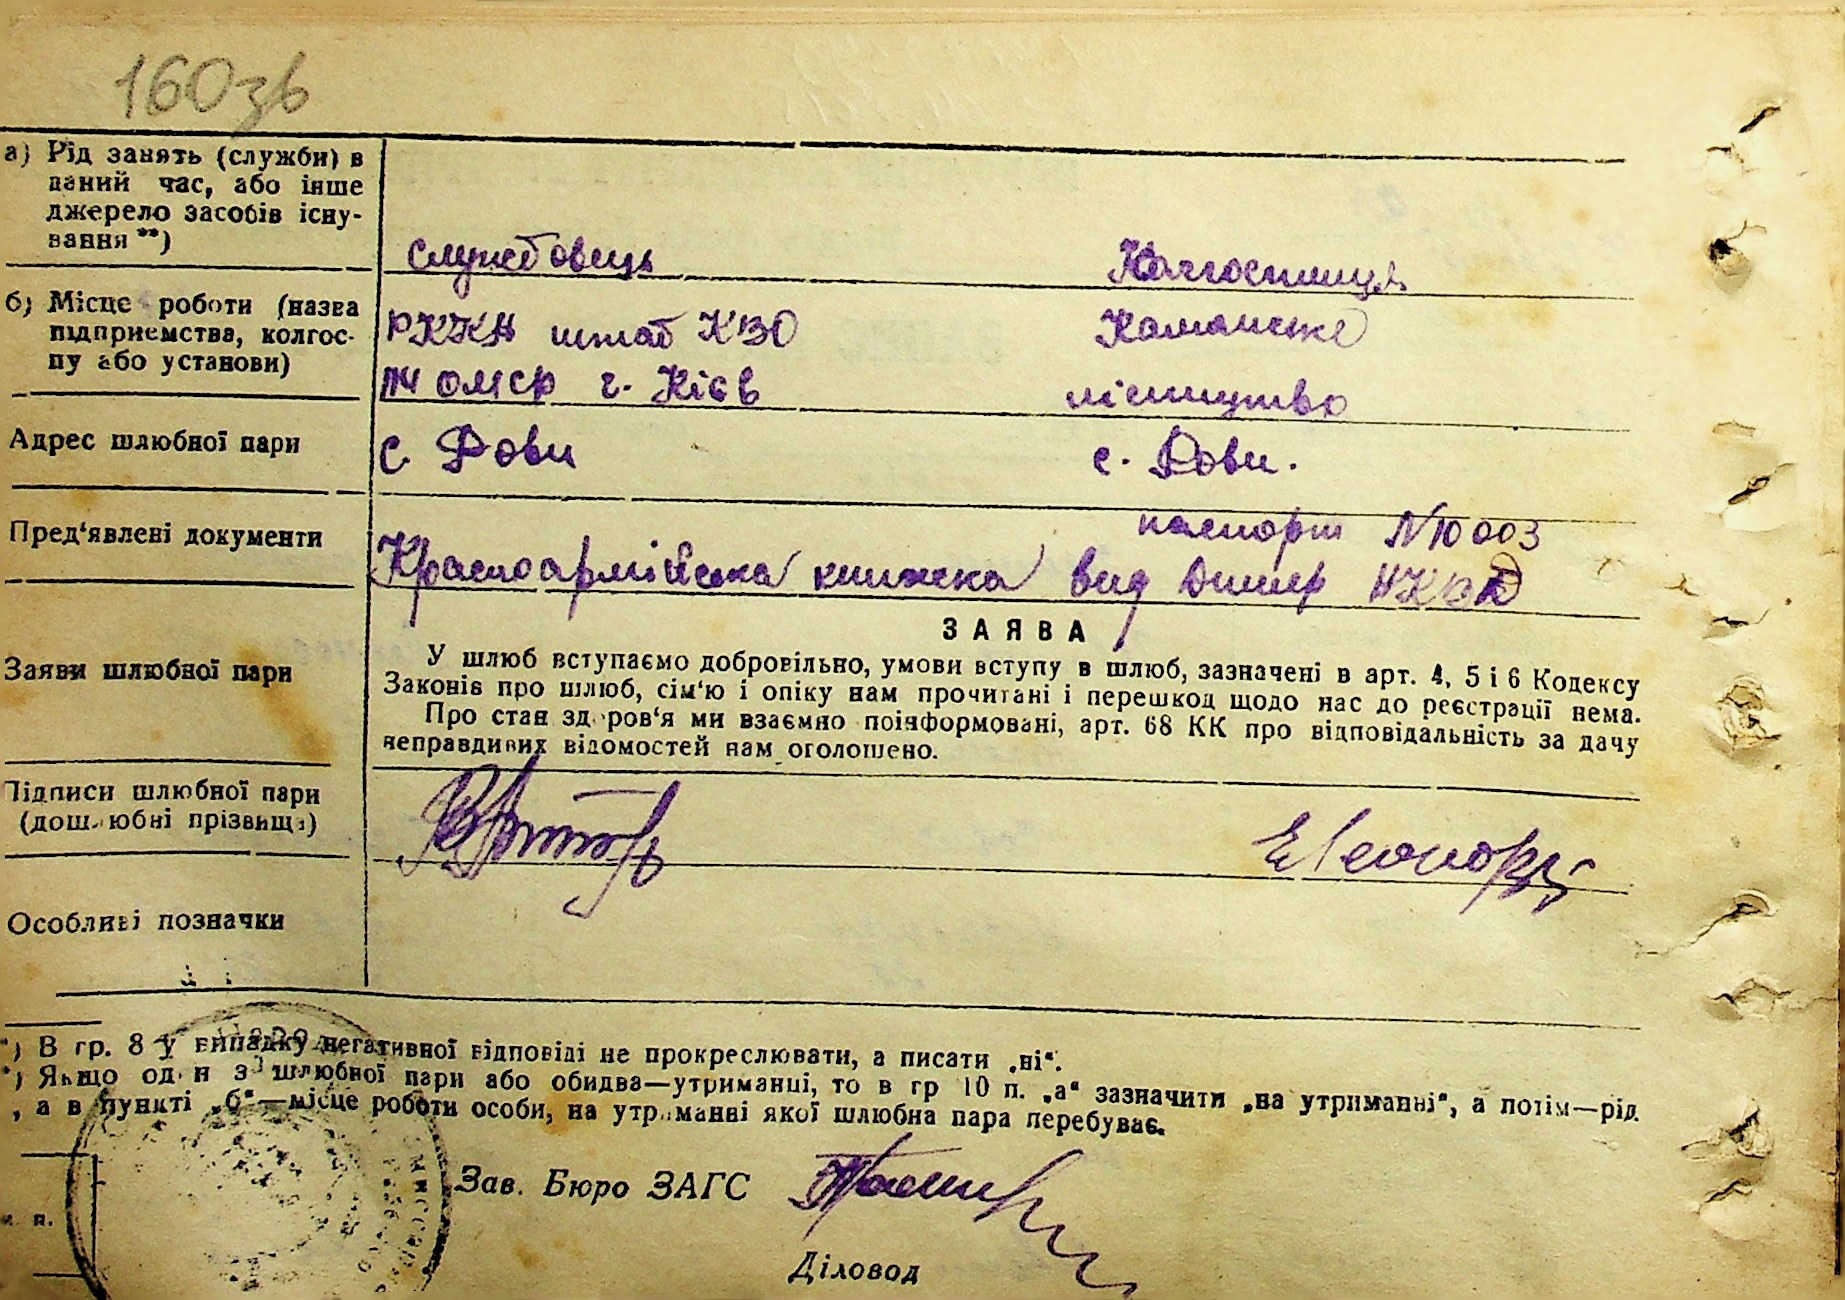 160зв
а) Рід занять (служби) в
даний час, або інше
джерело засобів існу-
вання **)
службовець Колгоспниця
б) Місце роботи (назва
підприємства, колгос-
пу або установи)
РККА штаб КВО Команське
г. Київ лісництво
Адрес шлюбної пари
с. Рови с. Рови.
Пред'явлені документи
паспорт №10003
Красноармійська книжка вид Димер НКВД
ЗАЯВА
Заяви шлюбної пари
У шлюб вступаємо добровільно, умови вступу в шлюб, зазначені в арт. 4, 5 і 6 Кодексу
Законів про шлюб, сім'ю і опіку нам прочитані і перешкод щодо нас до реєстрації нема.
Про стан здоров'я ми взаємно поінформовані, арт. 68 КК про відповідальність за дачу
неправдивих відомостей нам оголошено.
Підписи шлюбної пари
(дошлюбні прізвища)
Особливі позначки
*) В гр. 8 у випадку негативної відповіді не прокреслювати, а писати „ні".
*) Якщо один з шлюбної пари або обидва—утриманці, то в гр 10 п. „а" зазначити „на утриманні", а потім—рід
, а в пункті „б"—місце роботи особи, на утриманні якої шлюбна пара перебуває.
Зав. Бюро ЗАГС
Діловод